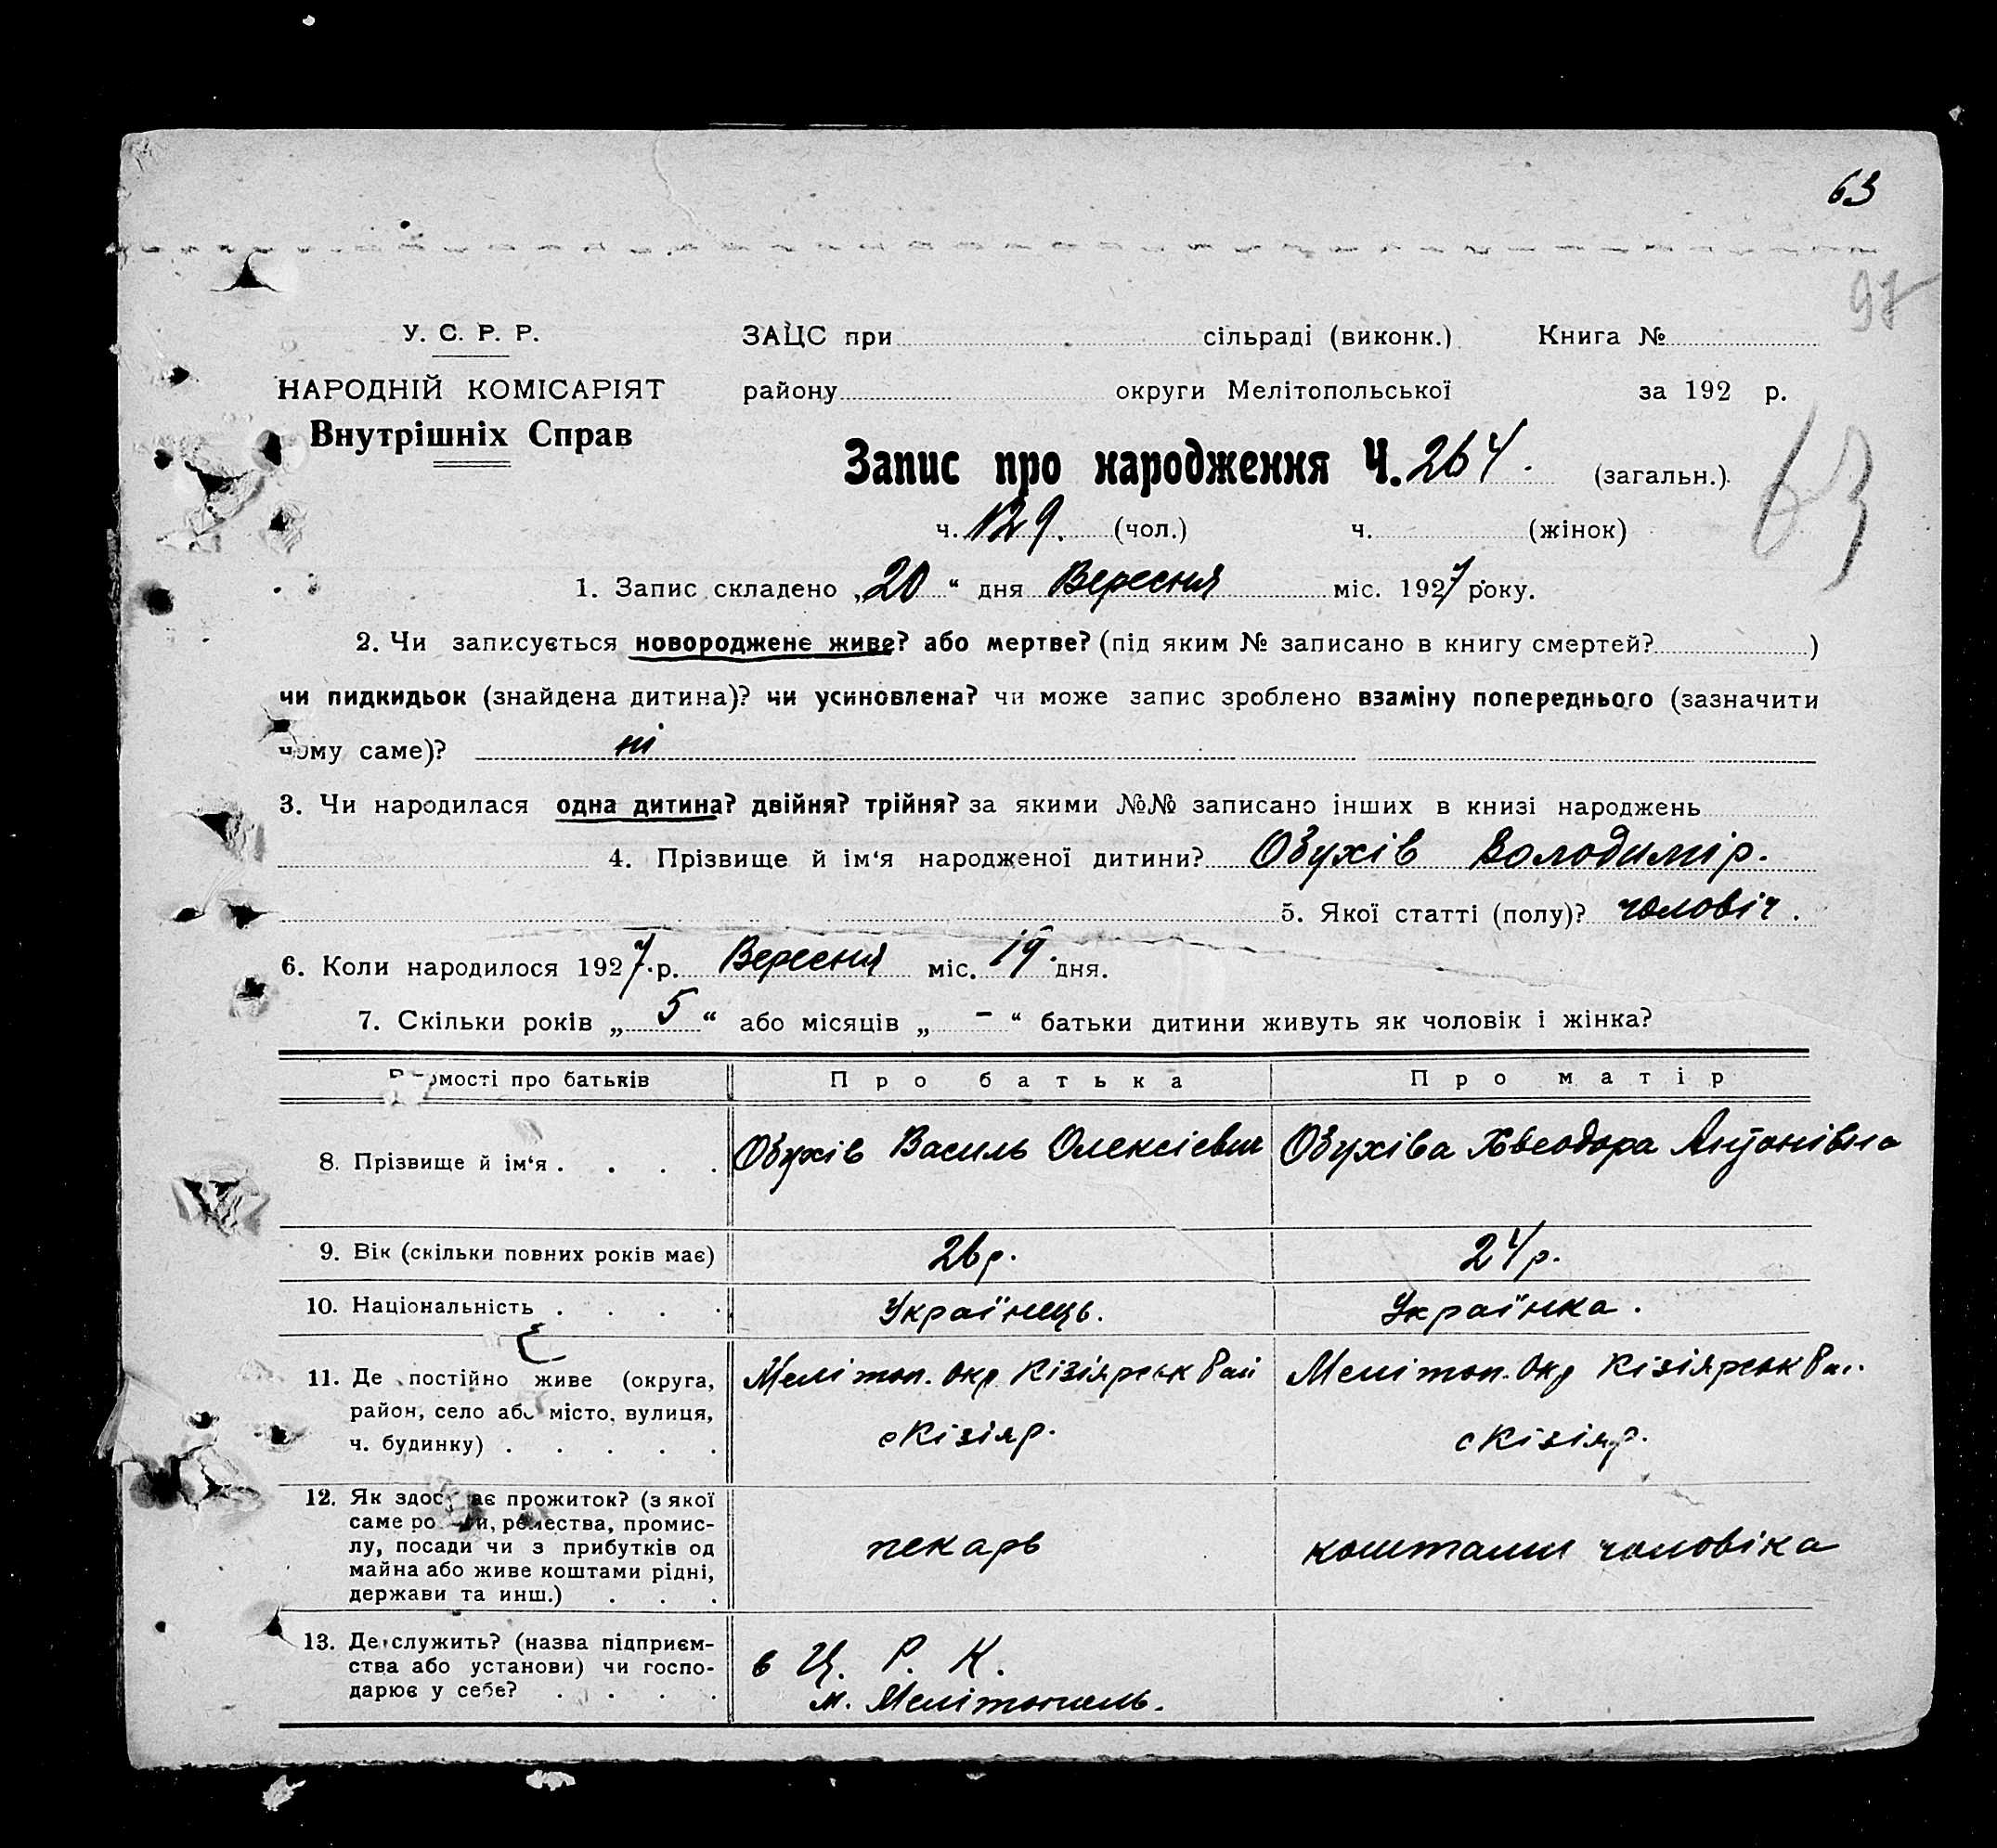 63
97
У. С. Р. Р.
ЗАЦС при сільраді (виконк.) Книга №
НАРОДНІЙ КОМІСАРІЯТ
району округи Мелітопольської за 192 р.
Внутрішніх Справ
Запис про народження Ч. 264. (загальн.)
63
ч. 129. (чол.) ч. (жінок)
1. Запис складено „20“ дня Вересня міс. 1927 року.
2. Чи записується новороджене живе? або мертве? (під яким № записано в книгу смертей? )
чи пидкидьок (знайдена дитина)? чи усиновлена? чи може запис зроблено взаміну попереднього (зазначити
чому саме)? ні
3. Чи народилася одна дитина? двійня? трійня? за якими №№ записано інших в книзі народжень
4. Прізвище й ім‘я народженої дитини? Обухів Володимір.
5. Якої статті (полу)? чоловіч.
6. Коли народилося 1927. р. Вересня міс. 19. дня.
7. Скільки років „5“ або місяців „-“ батьки дитини живуть як чоловік і жінка?
Відомості про батьків Про батька Про матір
8. Прізвище й ім‘я . . . . Обухів Василь Олексієвич Обухіва Хвеодора Антонівна
9. Вік (скільки повних років має) 26 р. 24 р.
10. Національність . . . . Українець. Українка.
11. Де постійно живе (округа, Мелітоп. Окр Кізіярськ Рай Мелітоп. Окр Кізіярськ Рай.
район, село або місто, вулиця, с Кізіяр. с Кізіяр.
ч. будинку) . . . . .
12. Як здобуває прожиток? (з якої
саме роботи, ремества, промис-
лу, посади чи з прибутків од пекарь коштами чоловіка
майна або живе коштами рідні,
держави та инш.) . . .
13. Де служить? (назва підприєм-
ства або установи) чи госпо- в Ц. Р. К.
дарює у себе? . . . . м. Мелітопель.